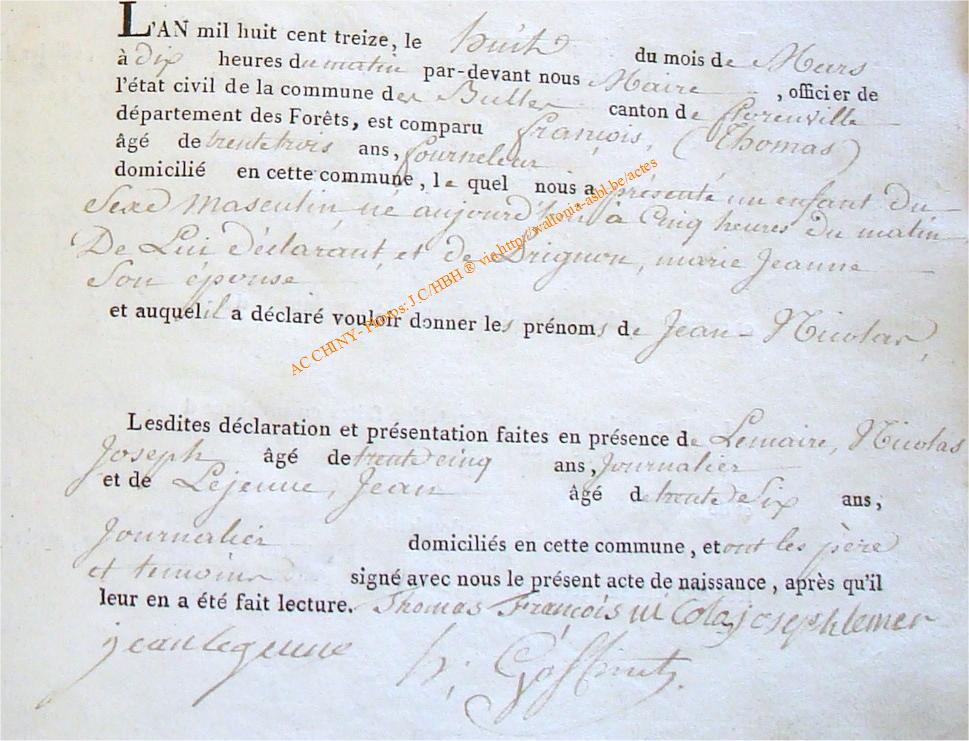 L'AN mil huit cent treize, le huit du mois de Mars
à dix heures du matin par-devant nous Maire , officier de
l'état civil de la commune de Bulles canton de florenville
département des Forêts, est comparu françois, (Thomas)
âgé de trente trois ans, fourneleur
domicilié en cette commune, le quel nous a présenté un enfant du
Sexe Masculin né aujourd'hui à Cinq heures du matin
De Lui déclarant, et de Drignon, marie Jeanne
Son épouse
et auquel il a déclaré vouloir donner les prénoms de Jean-Nicolas,
Lesdites déclaration et présentation faites en présence de Lemaire, Nicolas
Joseph âgé de trente cinq ans, Journalier
et de Lejeune, Jean âgé de trente Six ans,
Journalier domiciliés en cette commune, et ont les père
et temoins signé avec nous le présent acte de naissance, après qu'il
leur en a été fait lecture. Thomas François ni Colas joseph lemer
jean legeune h. Goffinet
AC CHINY - Photos: J.C/HBH ® via http://wallonia-asbl.be/actes